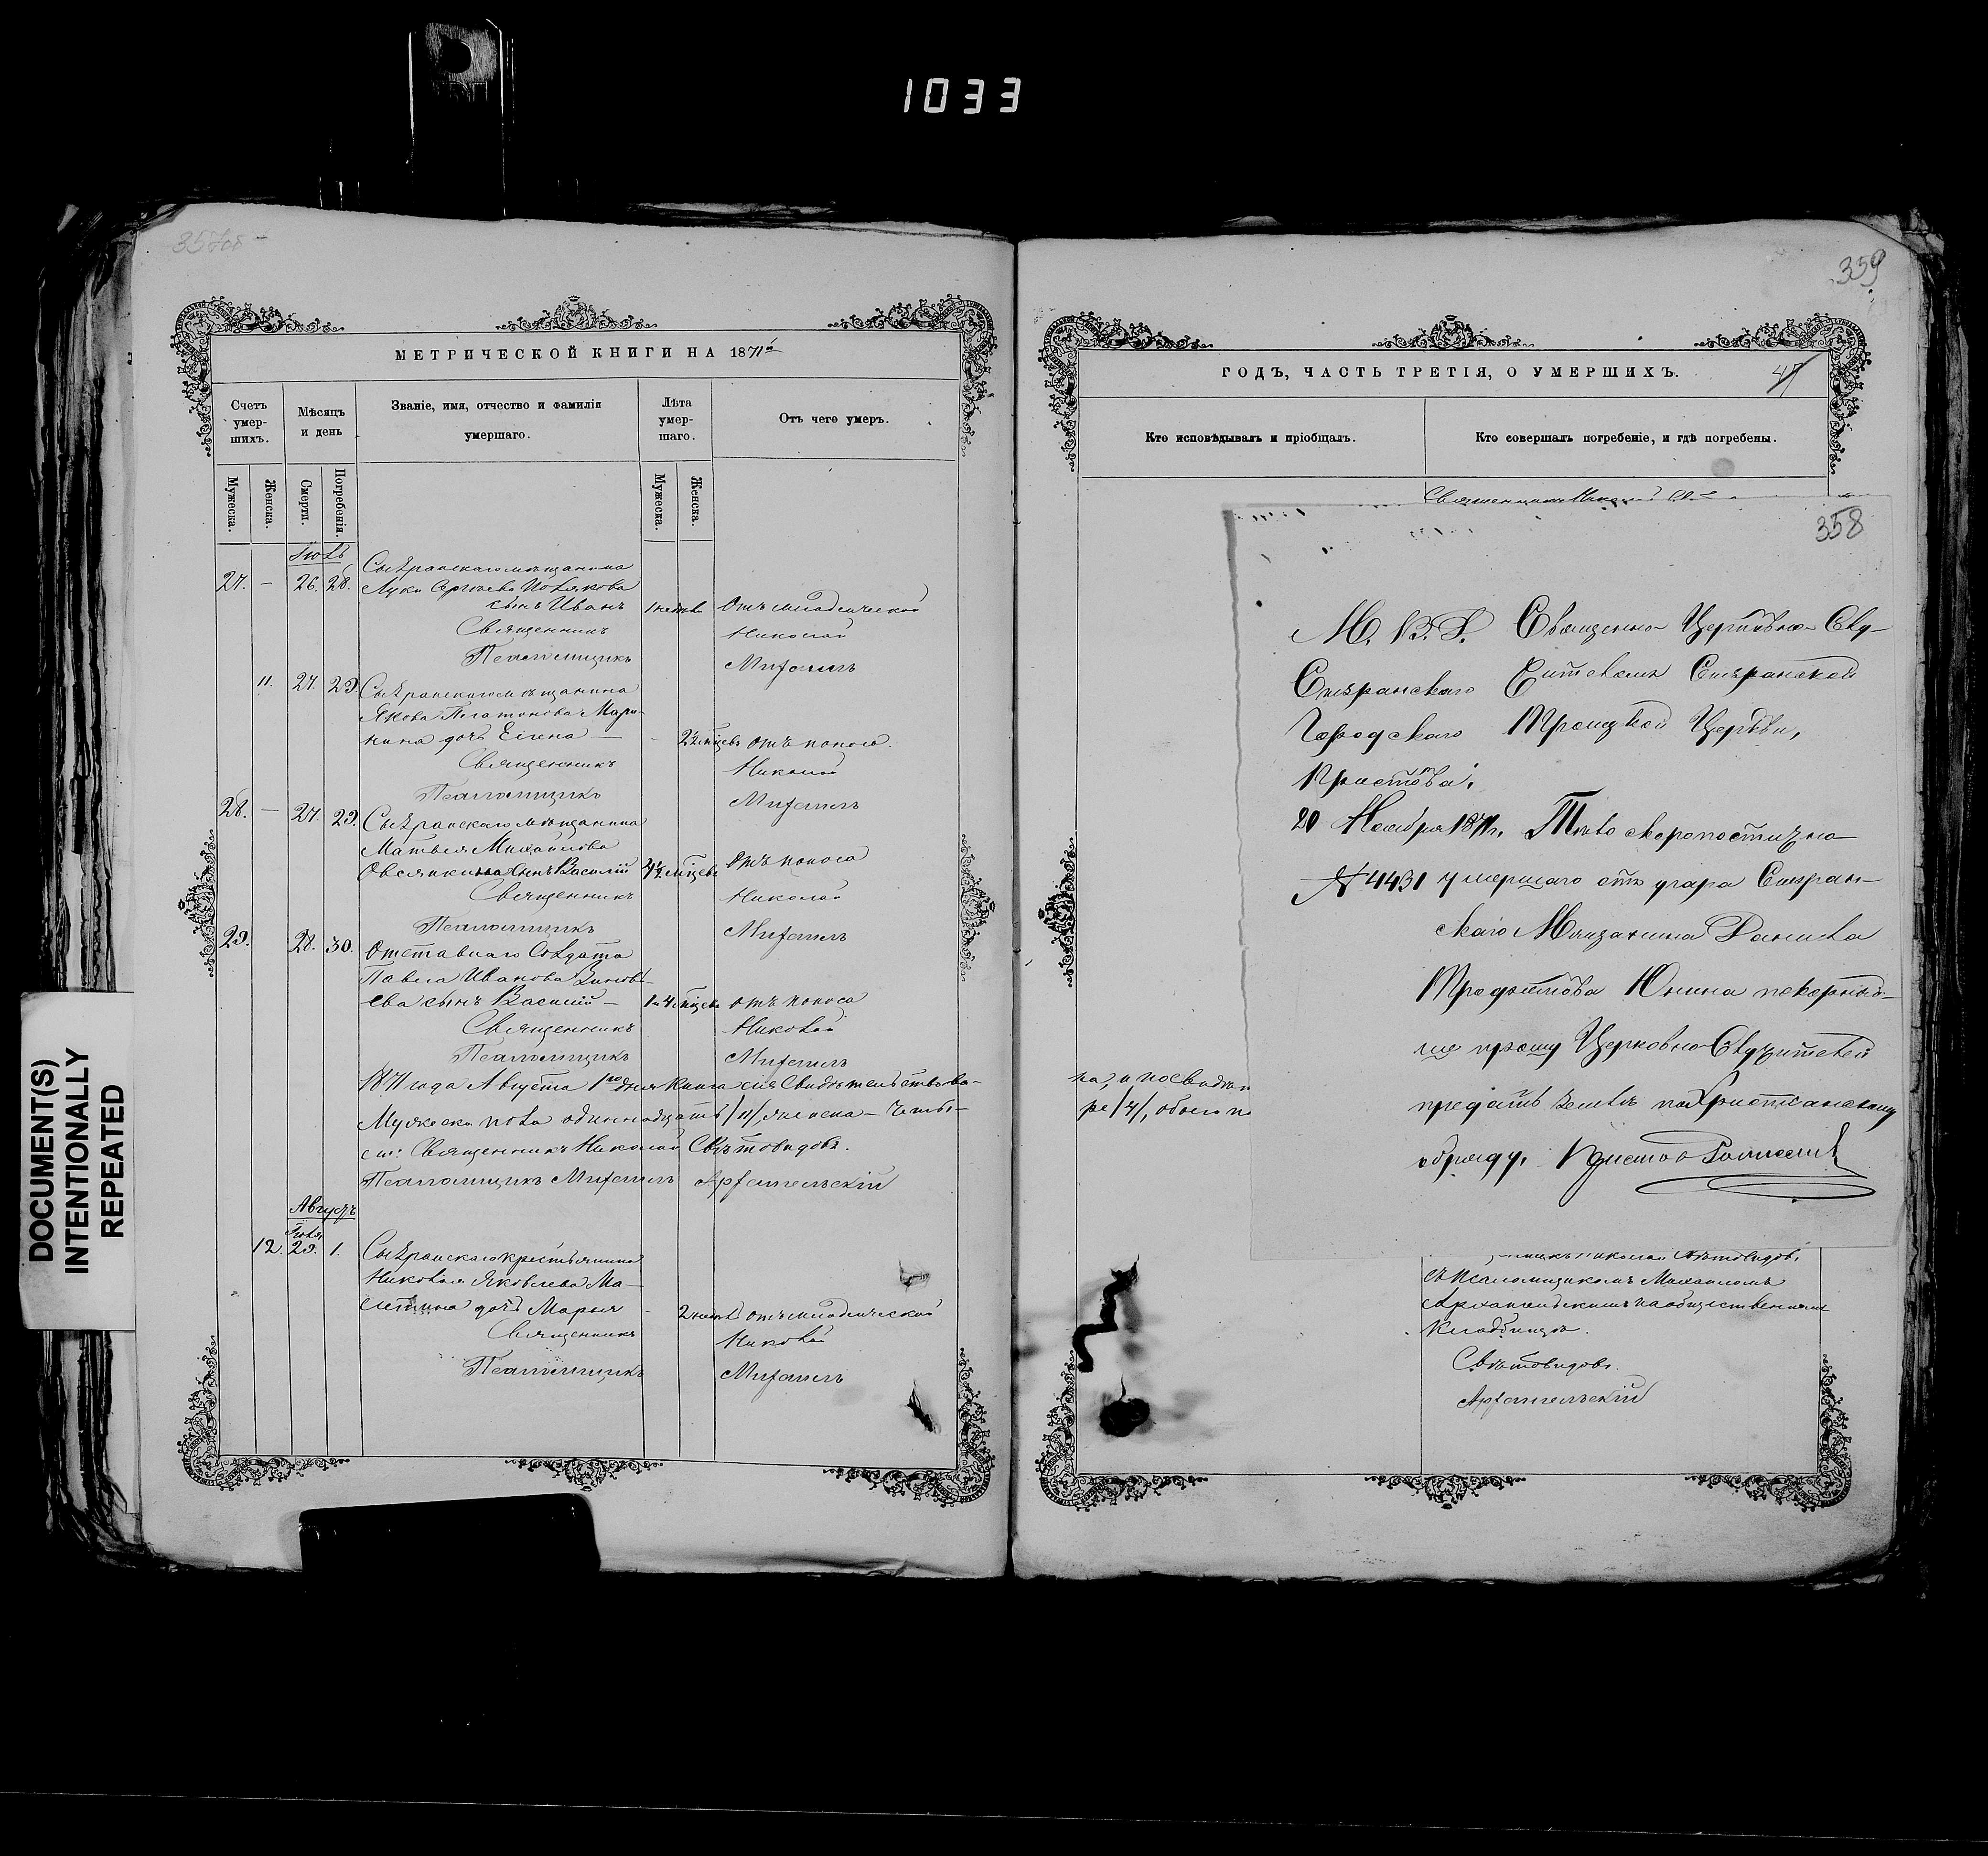 1033
357об
МЕТРИЧЕСКОЙ КНИГИ НА 1871й
Счетъ умер-шихъ.
Мѣсяцъ и день
Званіе, имя, отчество и фамилія умершаго.
Лѣта умер-шаго.
Отъ чего умеръ.
Мужеска.
Женска.
Смерти.
Погребенія.
Мужеска.
Женска.
Іюль
Сызранскаго мѣщанина
27. — 26. 28. Луки Сергѣева Полякова
сынъ Иванъ 1 недѣли Отъ младенческой
Священникъ Николай
Псаломщикъ Михаилъ
11. 27. 29. Сызранскаго мѣщанина
Якова Платонова Мари-
кина дочь Елена — 2½ мѣсцевъ отъ поноса.
Священникъ Николай
Псаломщикъ Михаилъ
28. — 27. 29. Сызранскаго мѣщанина
Матвѣя Михайлова
Овсянкина сынъ Василій мѣсцевъ Отъ поноса
Священникъ Николай
Псаломщикъ Михаилъ
29. 28. 30. Отставнаго Солдата
Павла Иванова Зиновь-
ева сынъ Василій — 1 и 4 мѣсцевъ отъ поноса
Священникъ Николай
Псаломщикъ Михаилъ
1871 года Августа 1го дня Книга сія Свидѣтельствова-
Мужеска пола одиннадцать /11/, женска — четы-
Священникъ Николай Свѣтовидовъ.
Псаломщикъ Михаилъ Архангельскій
Августъ
Іюля
12. 29. 1. Сызранскаго крестьянина
Николая Яковлева Ма-
дочь Марья 2 недѣль отъ младенческой
Священникъ Николай
Псаломщикъ Михаилъ
DOCUMENT(S)
INTENTIONALLY
REPEATED
359
ГОДЪ, ЧАСТЬ ТРЕТІЯ, О УМЕРШИХЪ.
47
Кто исповѣдывалъ и пріобщалъ.
Кто совершалъ погребеніе, и гдѣ погребены.
Священникъ Николай
358
М. В. Д. Священно-Церковно-Слу-
Сызранскаго жителямъ Сызранской
Городскаго Троицкой Церкви,
Пристава.
20 Ноября 1871 г. Тѣло скоропостижно
№ 4431 умершаго отъ угара Сызран-
скаго Мѣщанина Данила
Трофимова Юнина покорнѣй-
ше прошу Церковно-Служителей
предать землѣ по Христіанскому
обряду. Приставъ
на, и по
ре /4/, обоего по
Николай Свѣтовидовъ
съ псаломщикомъ Михаиломъ
Архангельскимъ на общественномъ
кладбищѣ.
Свѣтовидовъ.
Архангельскій